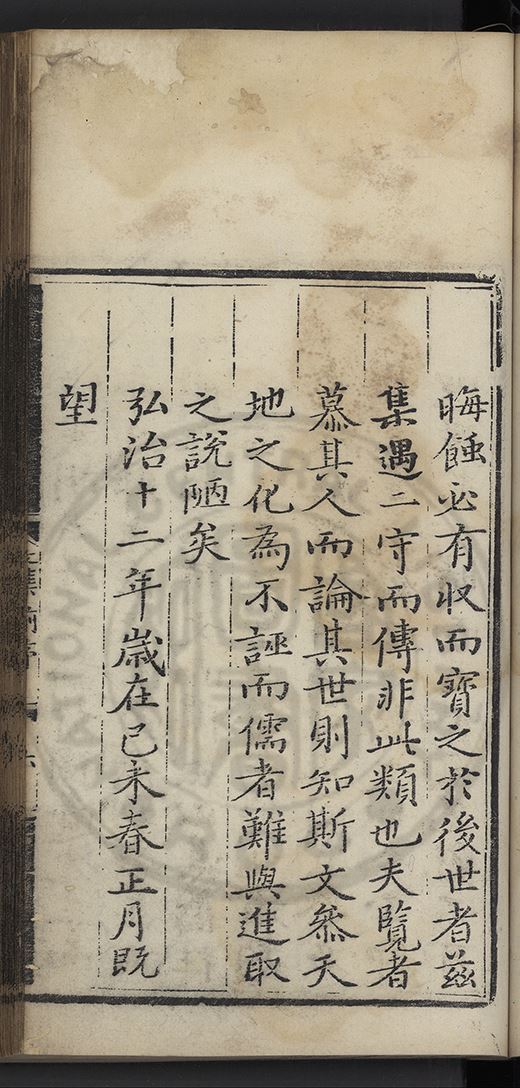 晦蝕必有収而寶之於後世者茲
集遇二守而傳非此類也夫覽者
慕其人而論其世則知斯文叅天
地之化為不誣而儒者難與進取
之說陋矣
弘治十二年歲在己未春正月既
望